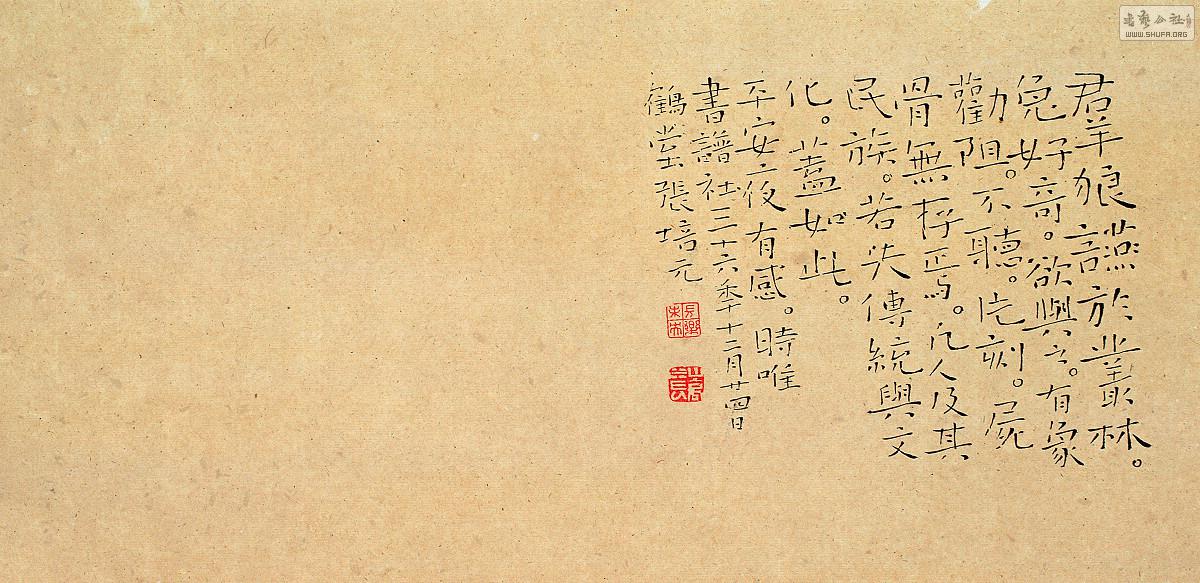 羣狼讌於叢林。
兔好奇。欲與之。有象
勸阻。不聽。片刻。屍
骨無存焉。凡人及其
民族。若失傳統與文
化。蓋如此。
平安夜有感。時唯
書譜社三十六季十二月廿四日
鶴堂張培元
书艺公社
WWW.SHUFA.ORG